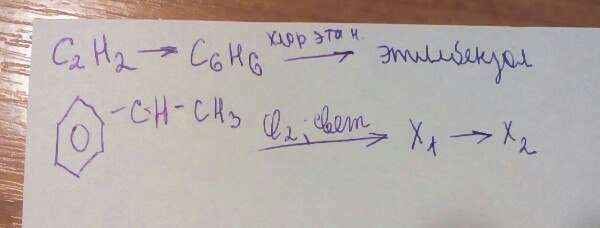 C₂H₂ → C₆H₆ хлорэтан → этилбензол
-CH-CH₃ Cl₂; свет → X₁ → X₂